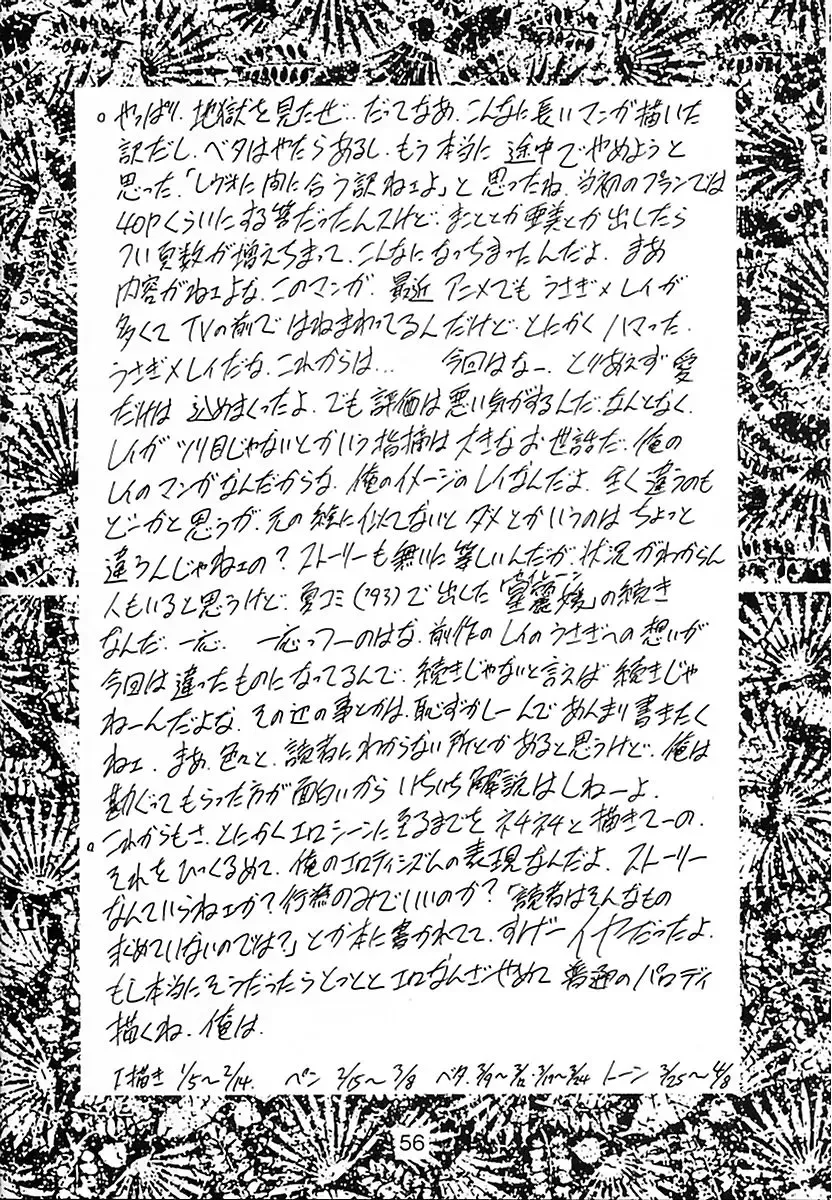 。やっぱり、地獄を見たぜ‥だってなあ、こんなに長いマンガ描いた
訳だし、ベタはやたらあるし、もう本当に途中でやめようと
思った。「レヴォに間に合う訳ねェよ」と思ったね。当初のプランでは
40Pくらいにする筈だったんスけど、まことか亜美とか出したら
つい頁数が増えちまって、こんなになっちまったんだよ。まあ
内容がねェよな、このマンガ。最近アニメでもうさぎ×レイが
多くてTVの前ではねまわってるんだけど、とにかくハマった。
うさぎ×レイだな、これからは… 今回はなー、とりあえず愛
だけは込めまくったよ。でも評価は悪い気がするんだ、なんとなく。
レイがツリ目じゃないとかいう指摘は大きなお世話だ。俺の
レイのマンガなんだからな。俺のイメージのレイなんだよ。全く違うのも
どーかと思うが、元の絵に似てないとダメとかいうのはちょっと
違うんじゃねェの?ストーリーも無いに等しいんだが、状況がわからん
人もいると思うけど、夏コミ('93)で出した「麗嬢」の続き
なんだ、一応。 一応っつーのはな、前作のレイのうさぎへの想いが
今回は違ったものになってるんで、続きじゃないと言えば続きじゃ
ねーんだよな。その辺の事とかは、恥ずかしーんであんまり書きたく
ねェ。まあ、色々と、読者にわからない所とかあると思うけど、俺は
勘ぐってもらった方が面白いからいちいち解説はしねーよ。
。これからもさ、とにかくエロシーンに至るまでをネチネチと描きてーの。
それをひっくるめて、俺のエロティシズムの表現なんだよ。ストーリー
なんていらねェか?行為のみでいいのか?「読者はそんなもの
求めていないのでは?」とか本に書かれてて、すげーイヤだったよ。
もし本当にそうだったらとっととエロなんざやめて普通のパロディ
描くね、俺は。
下描き 1/5〜2/14. ペン 2/15〜3/8 ベタ. 3/9〜3/12・3/17〜3/24 トーン 3/25〜4/8
56